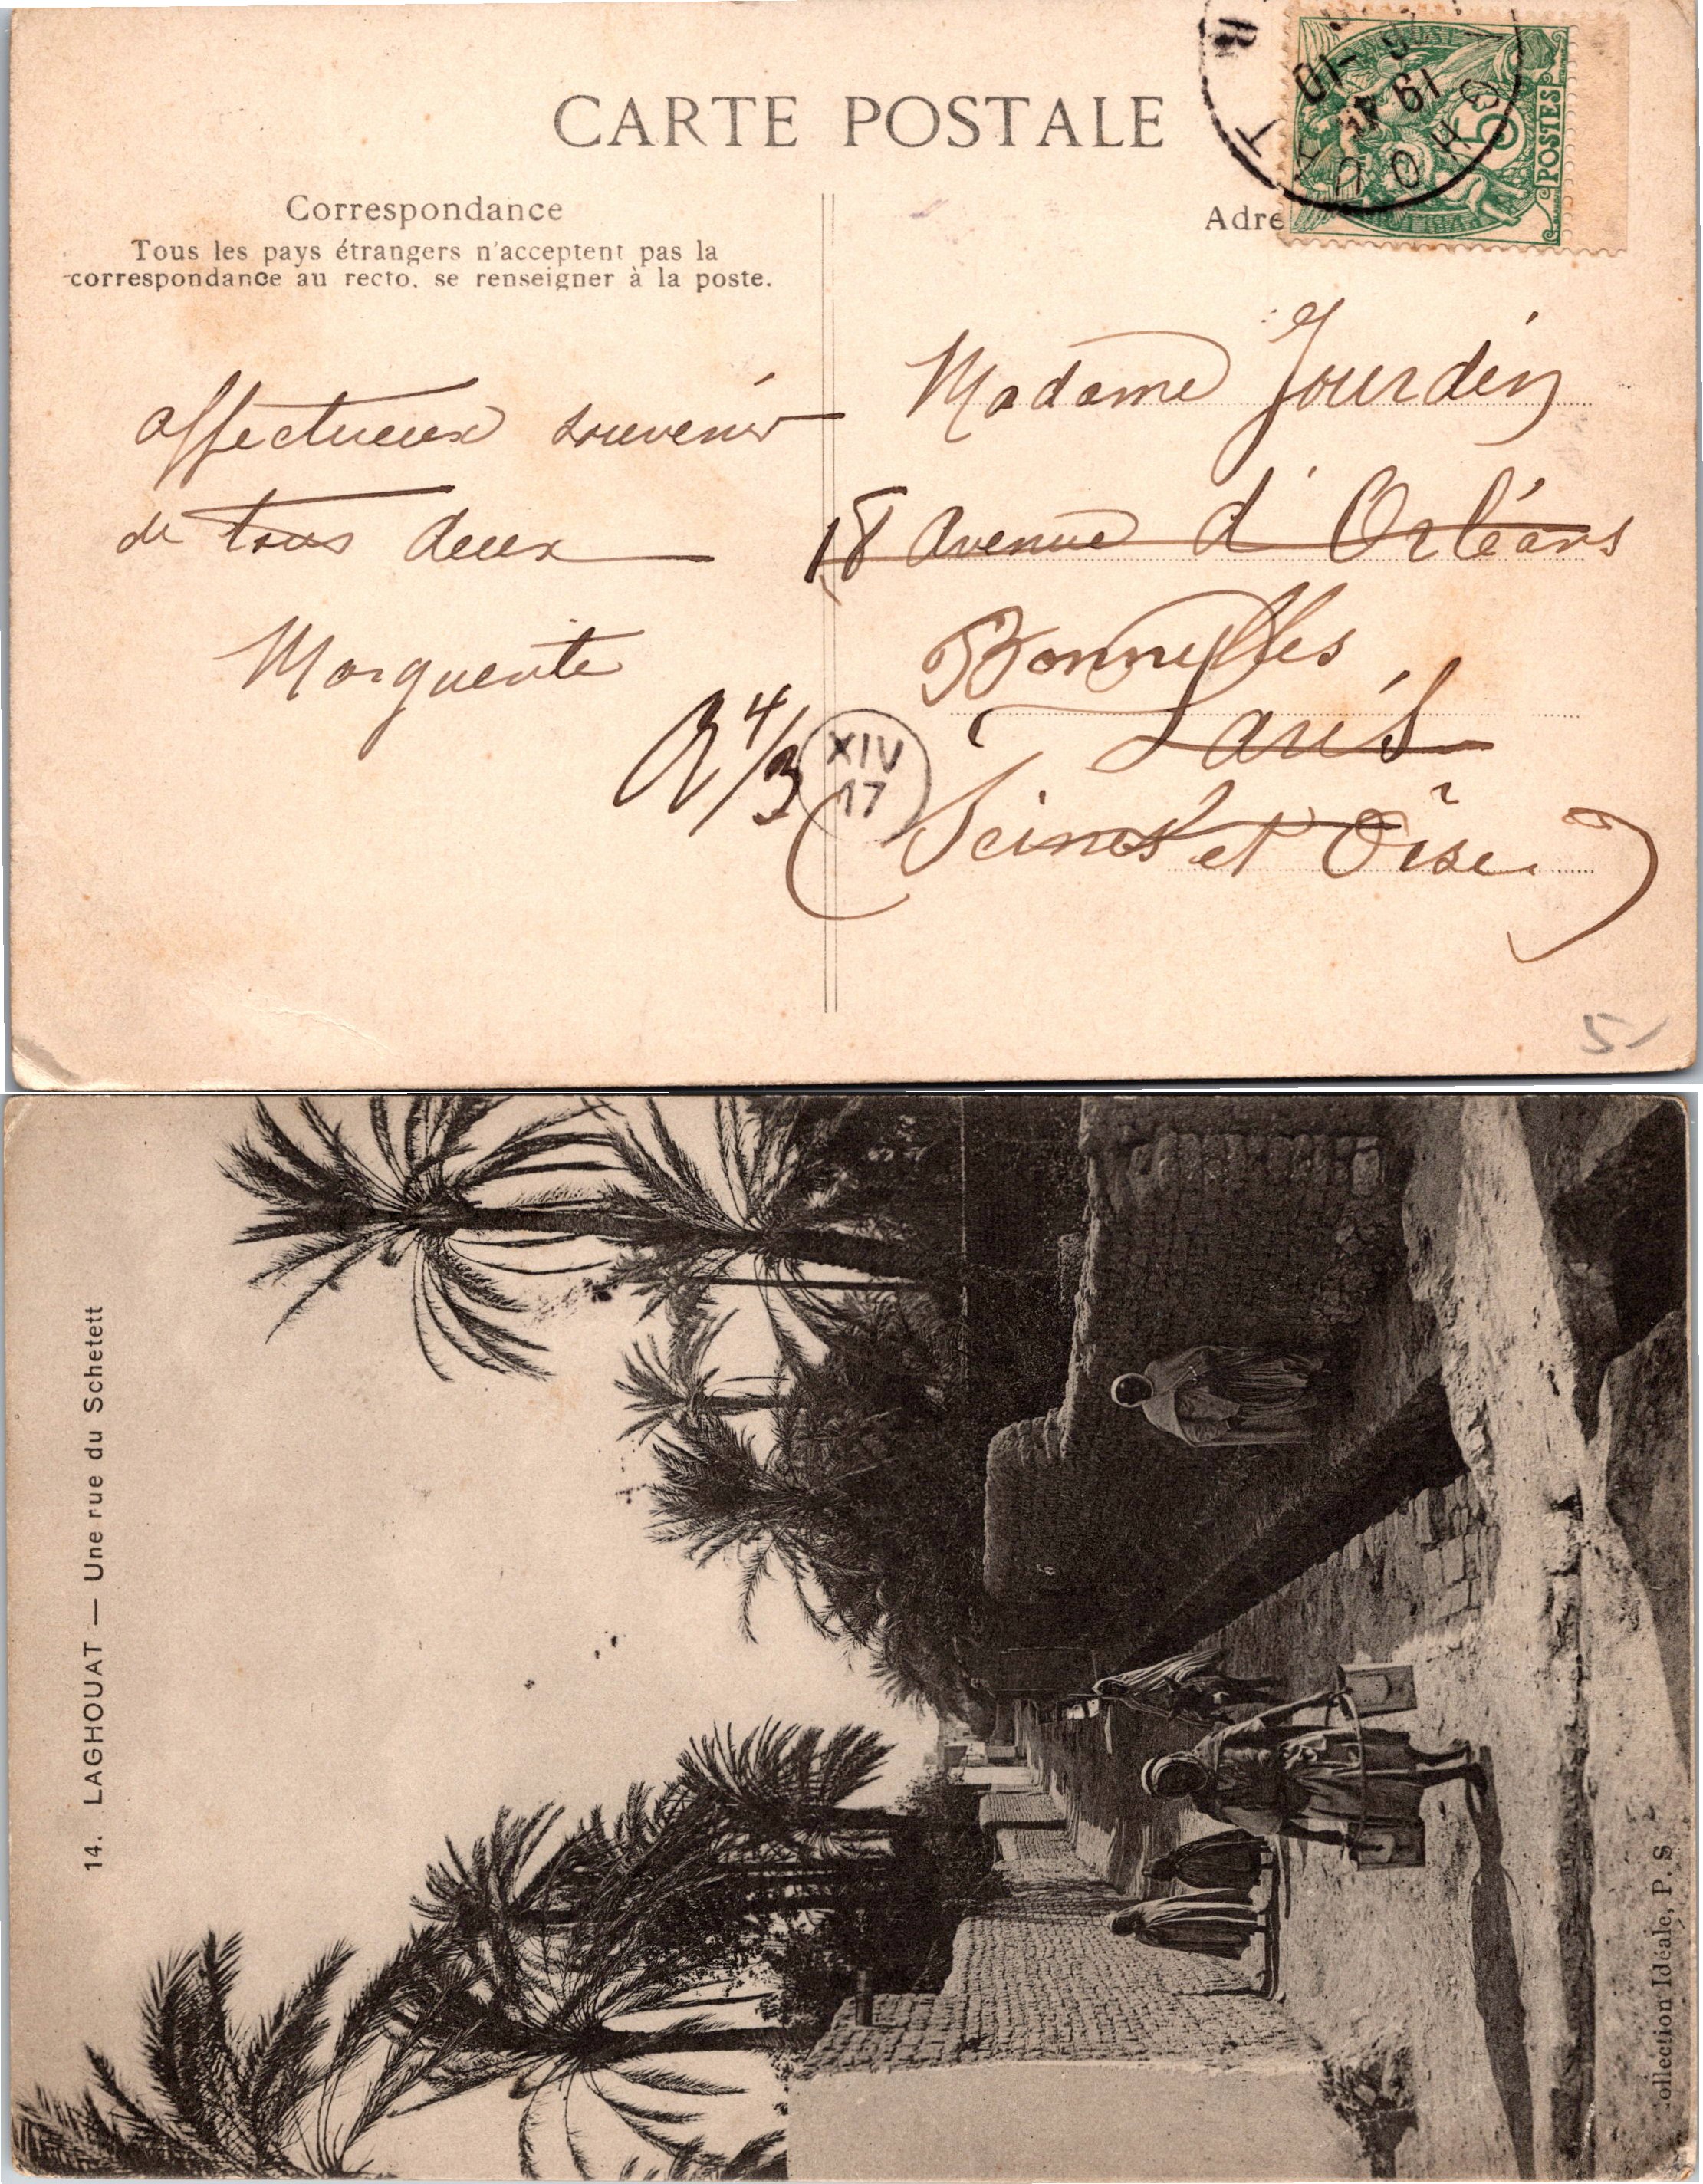 CARTE POSTALE
Correspondance
Tous les pays étrangers n'acceptent pas la
correspondance au recto, se renseigner à la poste.
Adre
POSTES
5
affectueux souvenir
de tous deux
Marguerite
Madame Jourdin
18 Avenue d'Orléans
Bonnelles
Paris
Seine et Oise
4/3
XIV
17
14. LAGHOUAT — Une rue du Schetett
ollection Idéale, P. S.